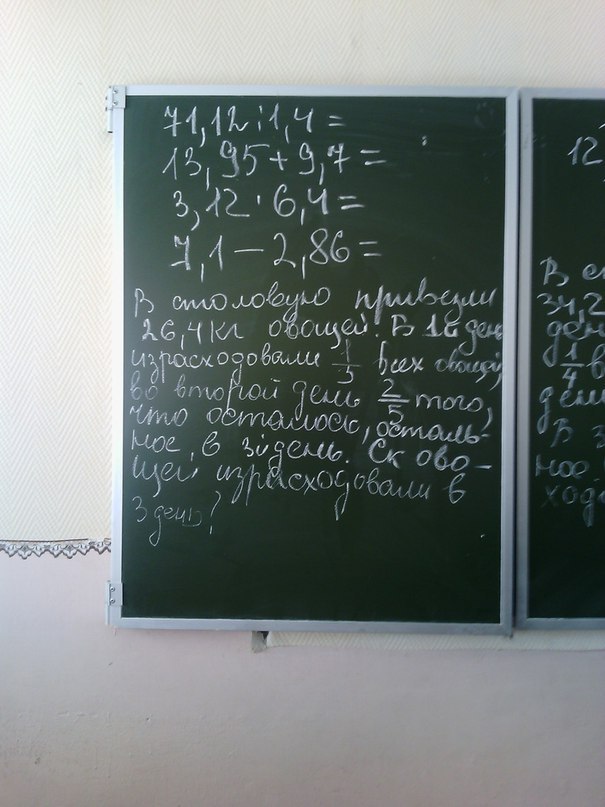 71,12:1,4=
13,95+9,7=
3,12·6,4=
7,1-2,86=
В столовую привезли
26,4кг овощей. В 1й день
израсходовали 1/3 всех овощей,
во второй день 2/5 того,
что осталось, осталь-
ное, в 3й день. Ск ово-
щей израсходовали в
3 день?
12
В ст
34,2
ден
1/4 в
ден
В 3
ное
ход